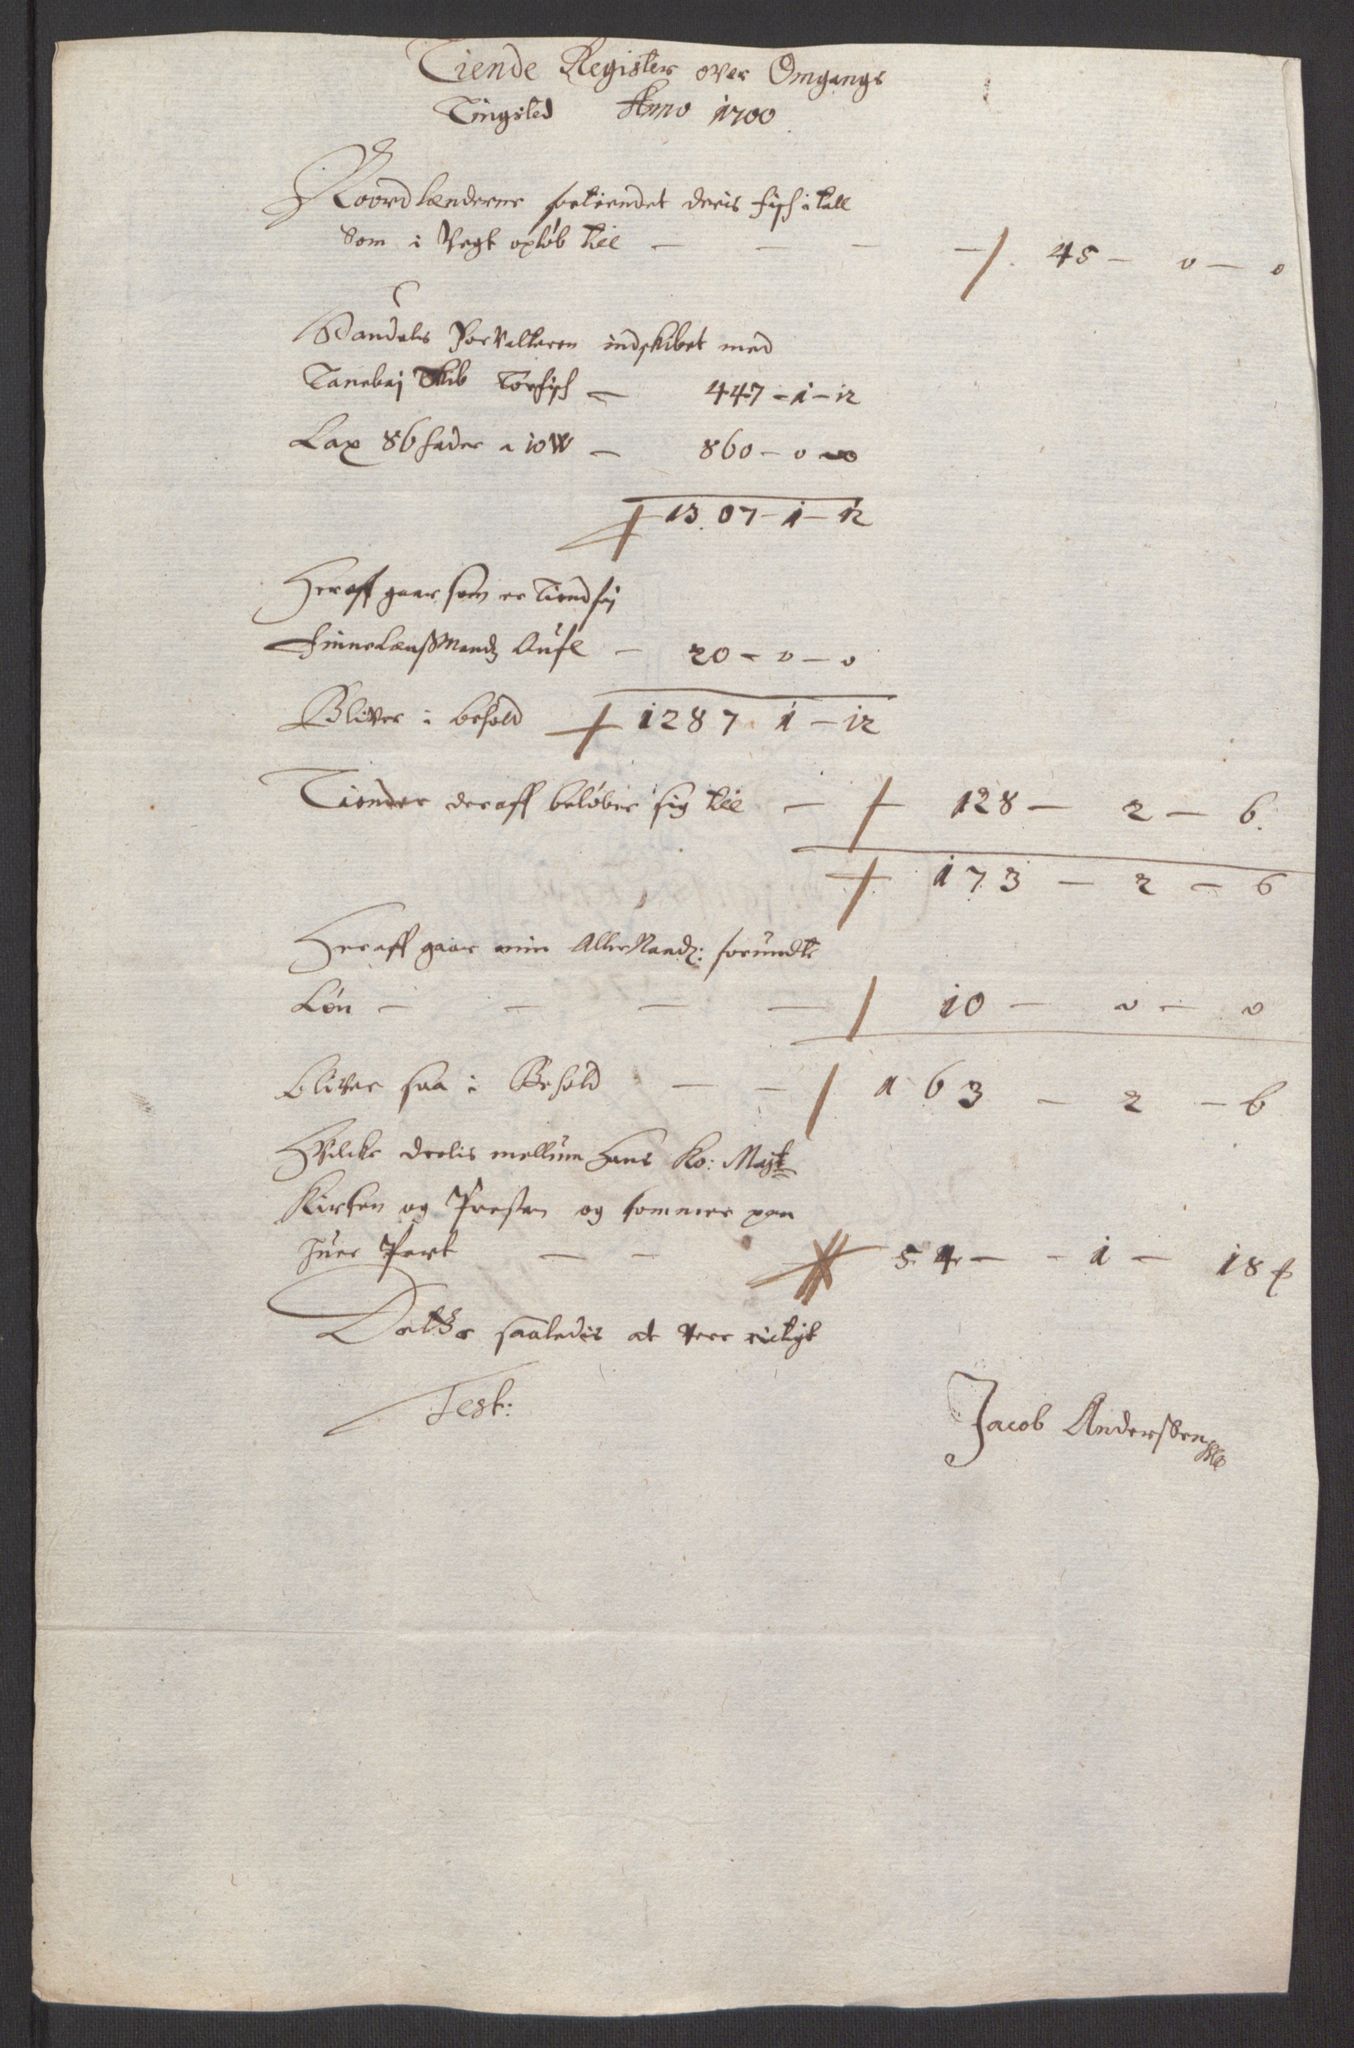 Tiende Register over Omgangs
Tingsted Anno 1700
Noordlænderne fortiendet deris fisch i tall
Som i Vegt opløb till — — — — 45 — 0 — 0
Handels Forvalteren indskibet med
Tanebaj Skib Torfisch — 447 - 1 - 12
Lax 86 fader a 10 W — 860 - 0 - 0
1307 - 1 - 12
Heraff gaar som er Tiendfrj
finnelænssmandz — 20 - 0 - 0
Bliver i behold 1287 1 - 12
Tiender deraff beløber sig till — 128 — 2 — 6
173 — 2 — 6
Heraff gaar min Aller Naadz: forundte
Løn — — — — 10 — 0 — 0
bliver saa i Behold — — 163 — 2 — 6
Hvilke deelis mellum Hans Ko: Mayt
Kirken og Presten og kommer paa
huer Part — — 54 — — 1 — 18
Dette saaledis at vere rictigt
Test:
Jacob Anderssen